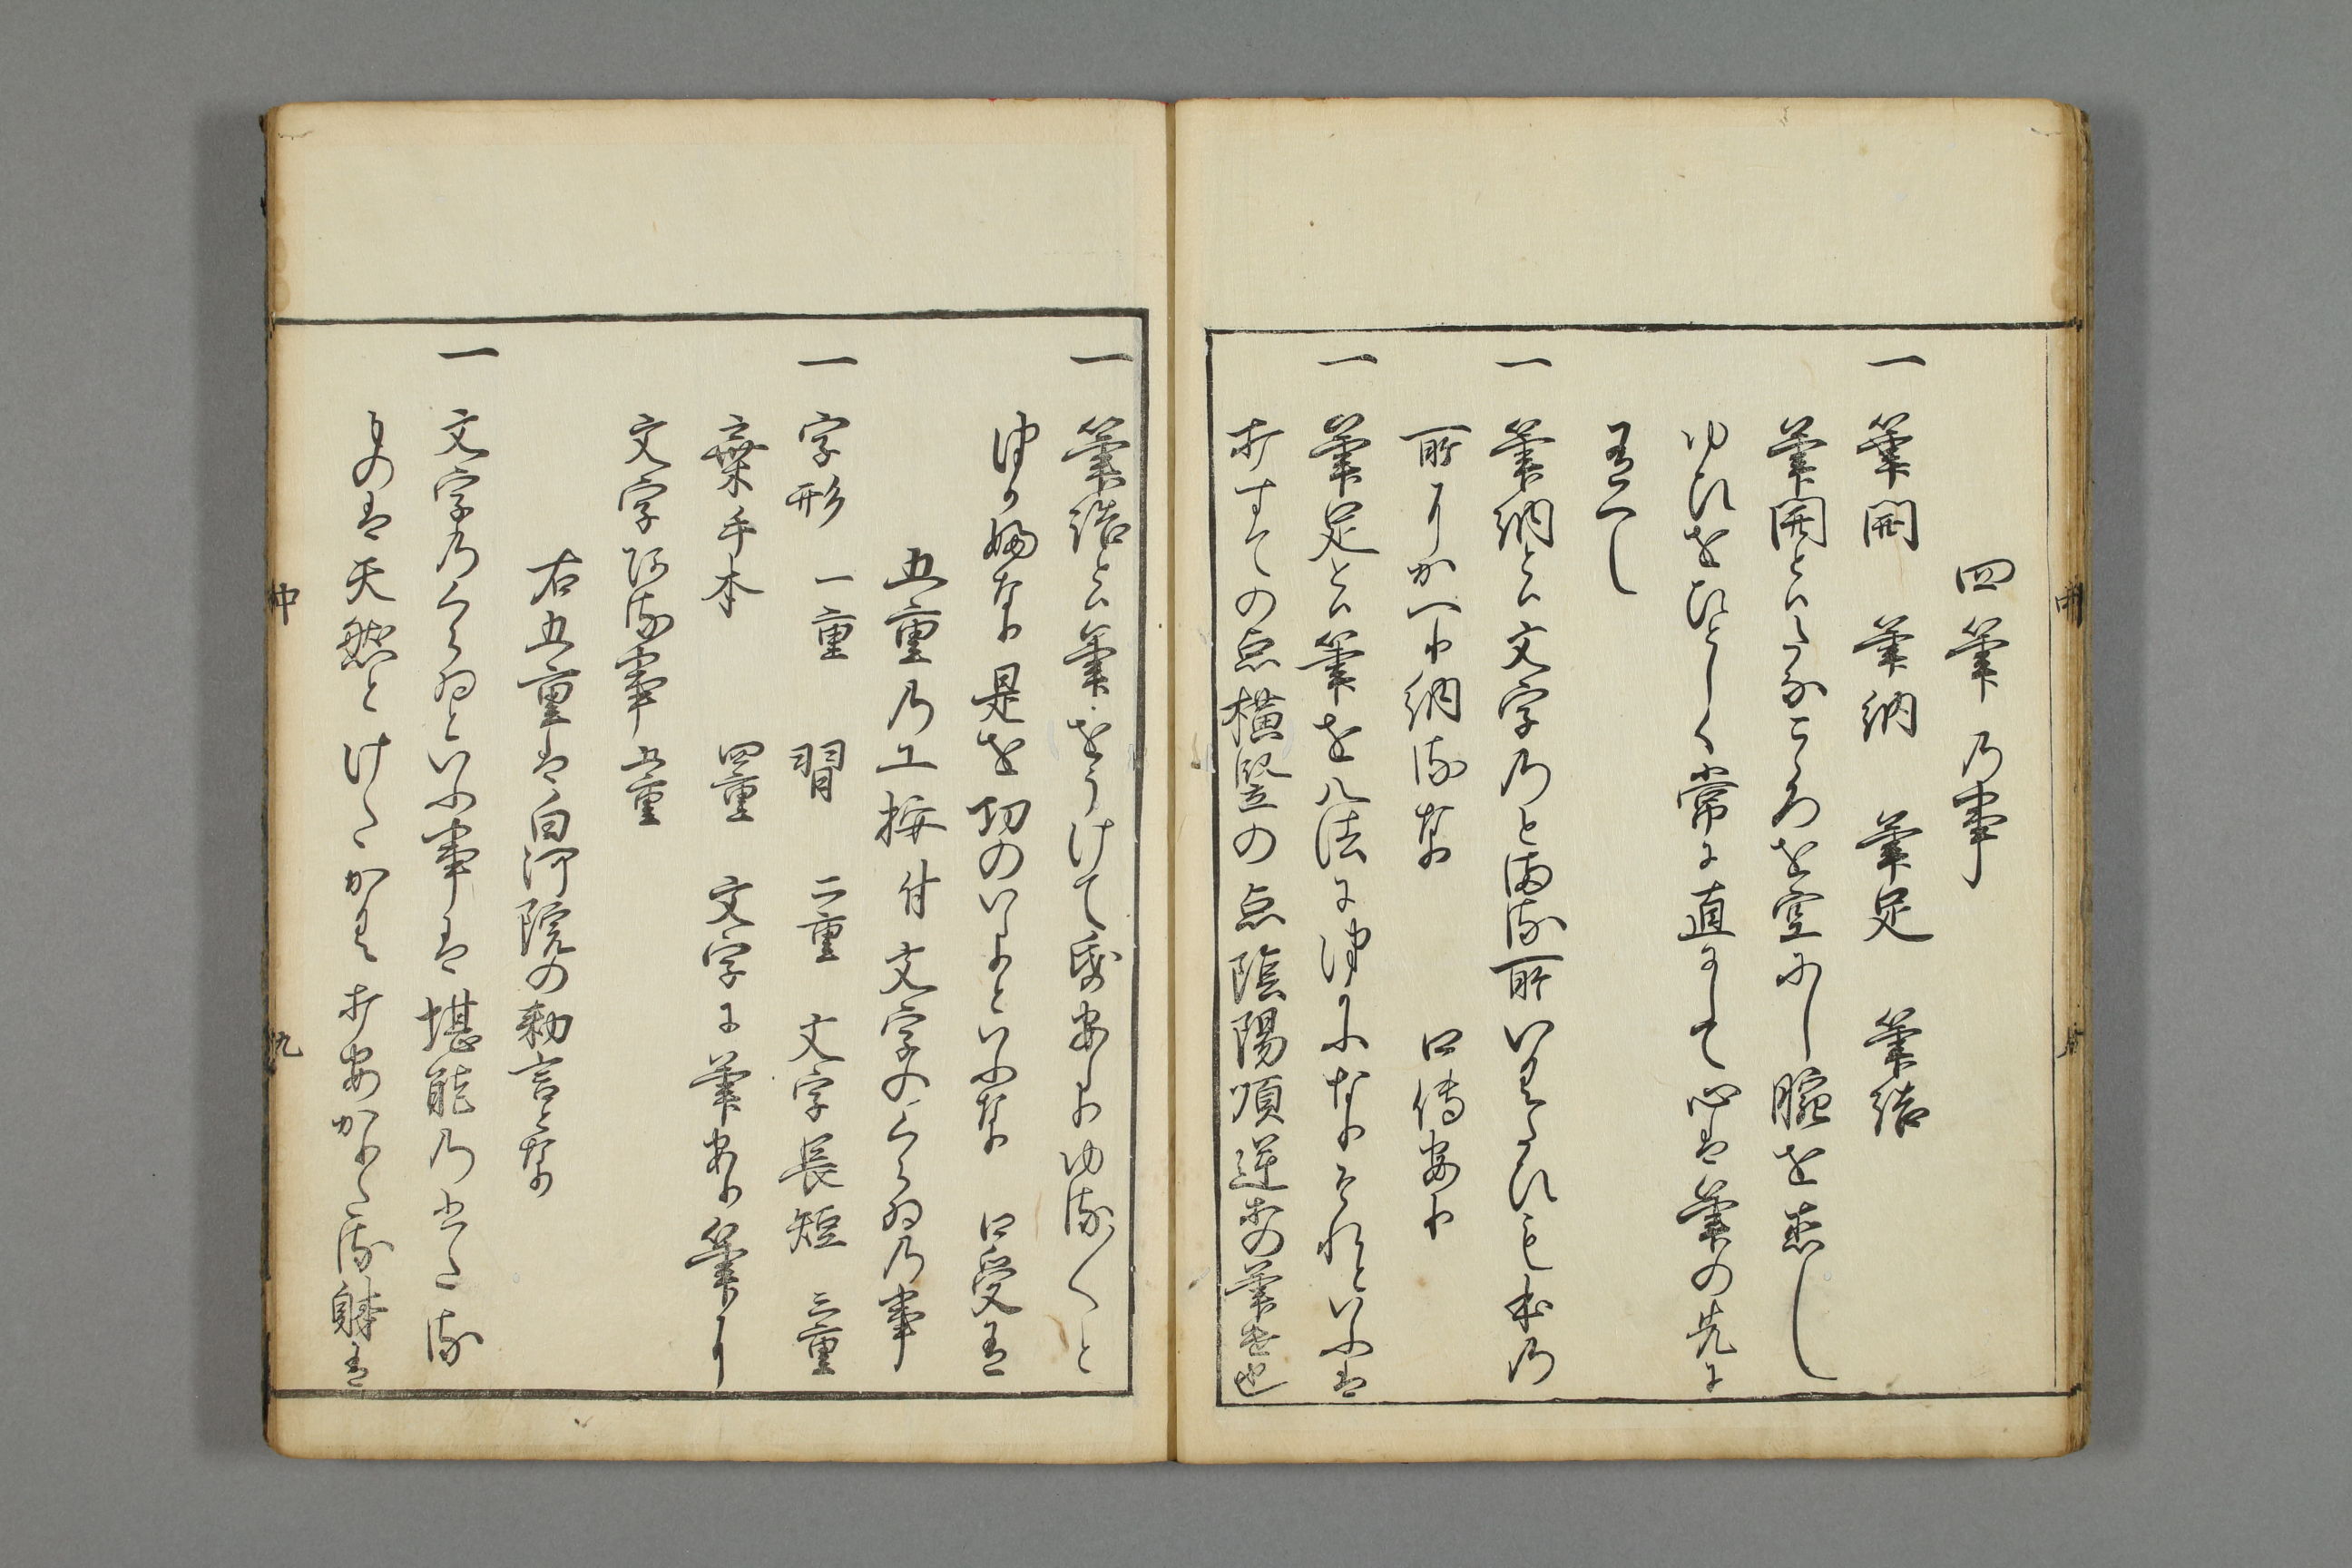 四筆乃事
一 筆開 筆納 筆足 筆結
筆開といふはこゝろを空にし腕を
ゆひをひとしく常に直にして心は筆の先に
有へし
一 筆納とは文字乃とまる所いきほひを本乃
所よりかへり納るなり 口傳あり
一 筆足とは筆を八法につかふなりそれといふは
打すての点横竪の点陰陽順逆等の筆法也
一 筆結とは筆をうけてあまりゆる〳〵と
つかふなり是を切のいりといふなり 口受有
五重乃工捺付文字のくらゐ乃事
一 字形 一重 習 二重 文字長短 三重
棄手本 四重 文字に筆あり筆より
文字ある事 五重
右五重は白河院の勅言となり
一 文字乃くらゐといふ事は堪能乃したる
ものは天然とけたかき 打あかりたる躰有
中
九